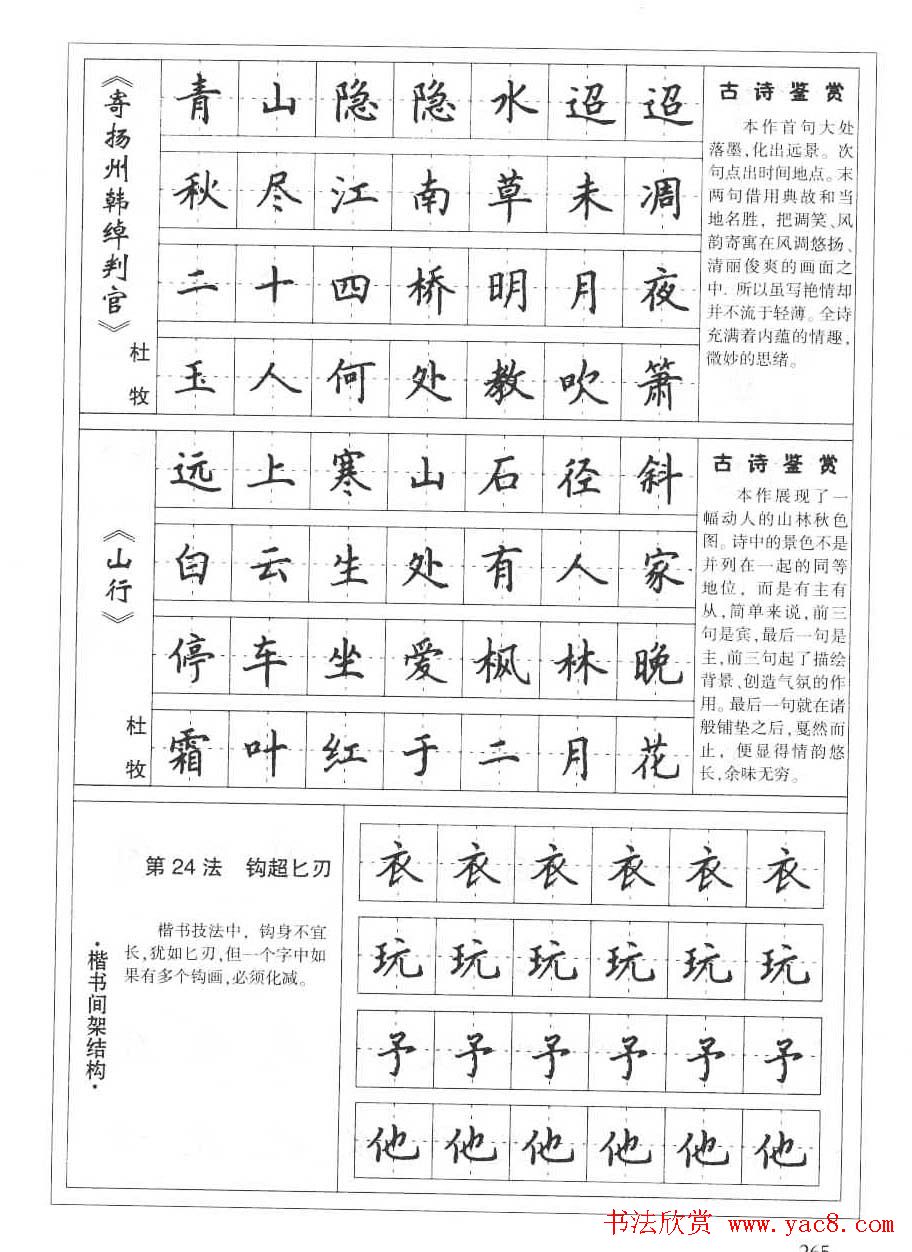 《寄扬州韩绰判官》
杜牧
青山隐隐水迢迢
秋尽江南草未凋
二十四桥明月夜
玉人何处教吹箫
古诗鉴赏
本作首句大处
落墨,化出远景。次
句点出时间地点。末
两句借用典故和当
地名胜，把调笑、风
韵寄寓在风调悠扬、
清丽俊爽的画面之
中．所以虽写艳情却
并不流于轻薄。全诗
充满着内蕴的情趣,
微妙的思绪。
《山行》
杜牧
远上寒山石径斜
白云生处有人家
停车坐爱枫林晚
霜叶红于二月花
古诗鉴赏
本作展现了一
幅动人的山林秋色
图。诗中的景色不是
并列在一起的同等
地位，而是有主有
从,简单来说,前三
句是宾,最后一句是
主,前三句起了描绘
背景、创造气氛的作
用。最后一句就在诸
般铺垫之后,戛然而
止，便显得情韵悠
长,余味无穷。
·楷书间架结构·
第24法 钩超匕刃
楷书技法中，钩身不宜
长,犹如匕刃,但一个字中如
果有多个钩画,必须化减。
衣衣衣衣衣衣
玩玩玩玩玩玩
予予予予予予
他他他他他他
书法欣赏 www.yac8.com
265